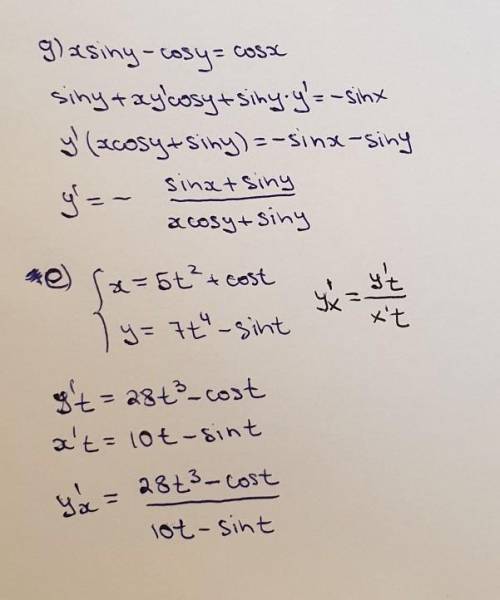 g) x siny - cosy = cosx
siny + xy'cosy + siny · y' = -sinx
y' (xcosy + siny) = -sinx - siny
y' = - (sinx + siny)/(xcosy + siny)
e) { x = 5t² + cost
y = 7t⁴ - sint
y'x = y't/x't
y't = 28t³ - cost
x't = 10t - sint
y'x = (28t³ - cost)/(10t - sint)